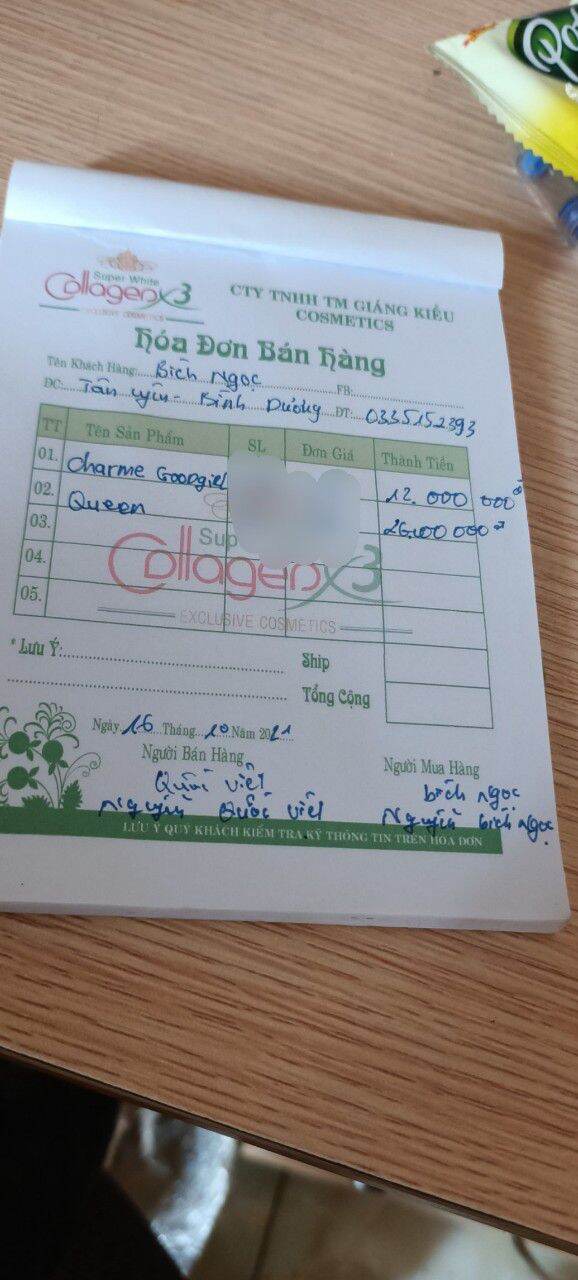 Super White
Collagen x3
EXCLUSIVE COSMETICS
CTY TNHH TM GIÁNG KIỀU
COSMETICS
Hóa Đơn Bán Hàng
Tên Khách Hàng: Bích Ngọc FB:
ĐC: Tân Uyên - Bình Dương ĐT: 0335152393
TT Tên Sản Phẩm SL Đơn Giá Thành Tiền
01. Charme Goodgirl 12.000 000đ
02. Queen 26.000 000đ
03.
04.
05.
Sup
Collagen x3
EXCLUSIVE COSMETICS
* Lưu Ý: Ship
Tổng Cộng
Ngày 16 Tháng 10 Năm 2021
Người Bán Hàng Người Mua Hàng
Quốc Việt bích Ngọc
Nguyễn Quốc Việt Nguyễn bích Ngọc
LƯU Ý QUÝ KHÁCH KIỂM TRA KỸ THÔNG TIN TRÊN HÓA ĐƠN